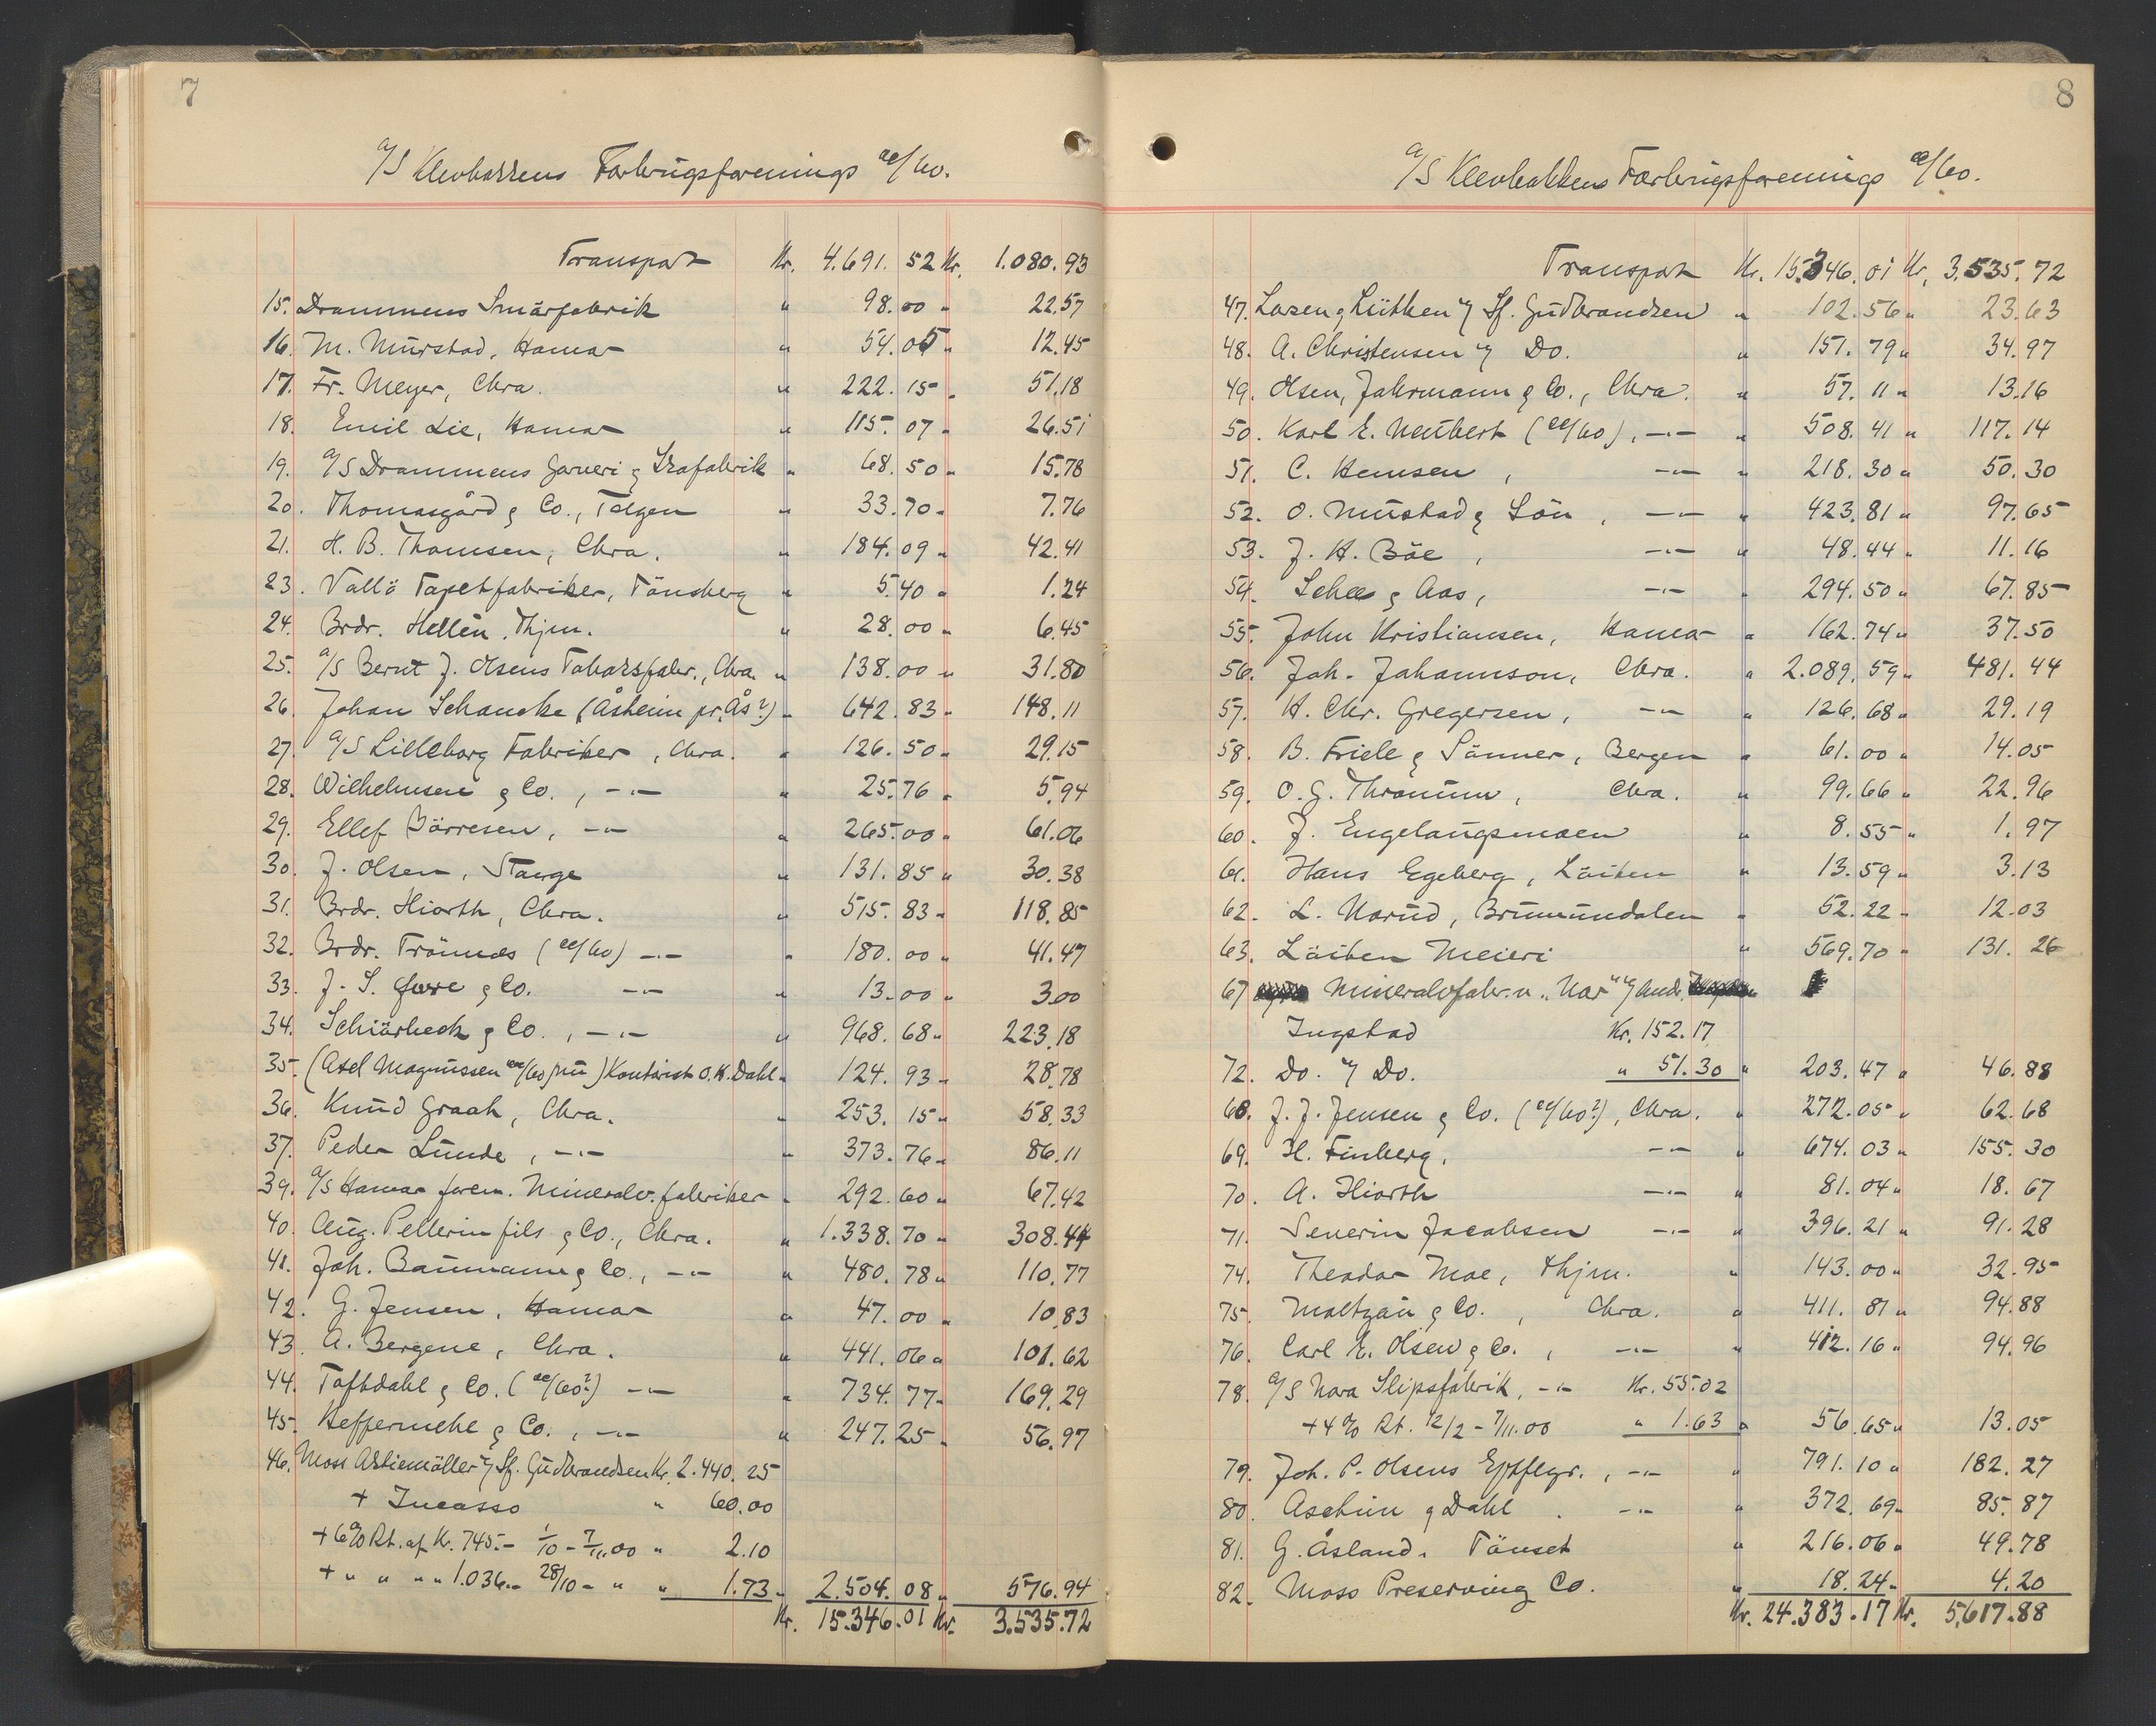 7
A/S Klevbakkens Forbrugsforenings ac/bo.
Transport Kr. 4.691.52 Kr. 1.080.93
15. Drammens Smörfabrik " 98.00 " 22.57
16. M. Mürstad, Hamar " 54.05 " 12.45
17. Fr. Meyer, Chra. " 222.15 " 51.18
18. Emil Lie, Hamar " 115.07 " 26.51
19. A/S Drammens Garveri & Skofabrik " 68.50 " 15.78
20. Thomasgård & Co., Telgen " 33.70 " 7.76
21. H. B. Thomsen, Chra. " 184.09 " 42.41
23. Vallö Tapetfabriker, Tönsberg " 5.40 " 1.24
24. Brdr. Hellen, Thjm. " 28.00 " 6.45
25. A/S Bernt J. Olsens Tobaksfabr., Chra. " 138.00 " 31.80
26. Johan Schancke (Åsheim pr. Ås?) " 642.83 " 148.11
27. A/S Lilleborg Fabriker, Chra. " 126.50 " 29.15
28. Wilhelmsen & Co., -"- " 25.76 " 5.94
29. Ellef Börresen, -"- " 265.00 " 61.06
30. J. Olsen, Stange " 131.85 " 30.38
31. Brdr. Hiorth, Chra. " 515.83 " 118.85
32. Brdr. Trönnes (ac/bo) -"- " 180.00 " 41.47
33. J. S. & Co. -"- " 13.00 " 3.00
34. Schiörbeck & Co., -"- " 968.68 " 223.18
35. (Axel Magnussen ac/bo, nü) Kontorist O. K. Dahl " 124.93 " 28.78
36. Knüd Graah, Chra. " 253.15 " 58.33
37. Peder Lünde, -"- " 373.76 " 86.11
39. A/S Hamar foren. Mineralv. fabriker " 292.60 " 67.42
40. Aüg. Pellerin fils & Co., Chra. " 1.338.70 " 308.44
41. Joh. Baümann & Co., -"- " 480.78 " 110.77
42. G. Jensen, Hamar " 47.00 " 10.83
43. A. Bergene, Chra. " 441.06 " 101.62
44. Toftdahl & Co. (ac/bo?) -"- " 734.77 " 169.29
45. Heffermehl & Co., -"- " 247.25 " 56.97
46. Moss Aktiemöller v/ Sf. Güdbrandsen Kr. 2.440.25
+ Incasso " 60.00
+ 6% Rt. af Kr. 745.- 1/10 - 7/11.00 " 2.10
+ " " " " 1.036.- 28/10 - " " 1.73 " 2.504.08 " 576.94
Kr. 15.346.01 Kr. 3.535.72
8
A/S Klevbakkens Forbrugsforenings ac/bo.
Transport Kr. 15.346.01 Kr. 3.535.72
47. Larsen & Lütken v/ Sf. Güdbrandsen " 102.56 " 23.63
48. A. Christensen v/ Do. " 151.79 " 34.97
49. Olsen, Jahrmann & Co., Chra. " 57.11 " 13.16
50. Karl E. Neübert (ac/bo), -"- " 508.41 " 117.14
51. C. Hemsen, -"- " 218.30 " 50.30
52. O. Müstad & Sön, -"- " 423.81 " 97.65
53. J. H. Böe, -"- " 48.44 " 11.16
54. & Aas, -"- " 294.50 " 67.85
55. John Kristiansen, Hamar " 162.74 " 37.50
56. Joh. Johannson, Chra. " 2.089.59 " 481.44
57. H. Chr. Gregersen, -"- " 126.68 " 29.19
58. B. Friele & Sönner, Bergen " 61.00 " 14.05
59. O. G. Thronüm, Chra. " 99.66 " 22.96
60. J. Engelaugsmoen " 8.55 " 1.97
61. Hans Egeberg, Löiten " 13.59 " 3.13
62. L. Norüd, Brümünddalen " 52.22 " 12.03
63. Löiten Meieri " 569.70 " 131.26
67. Mineralvfabr. "Nor" v/ And.
Ingstad Kr. 152.17
72. Do. v/ Do. " 51.30 " 203.47 " 46.88
68. J. J. Jensen & Co. (ac/bo?), Chra. " 272.05 " 62.68
69. H. Finberg, -"- " 674.03 " 155.30
70. A. Hiorth -"- " 81.04 " 18.67
71. Severin Jacobsen -"- " 396.21 " 91.28
74. Theodor Moe, Thjm. " 143.00 " 32.95
75. Moltzaü & Co., Chra. " 411.81 " 94.88
76. Carl E. Olsen & Co., -"- " 412.16 " 94.96
78. A/S Nora Slipsfabrik, -"- Kr. 55.02
+ 4% Rt. 12/2 - 7/11.00 " 1.63 " 56.65 " 13.05
79. Joh. P. Olsens Eftflgr., -"- " 791.10 " 182.27
80. Aschim & Dahl -"- " 372.69 " 85.87
81. G. Åsland, Tönset " 216.06 " 49.78
82. Moss Preserving Co. " 18.24 " 4.20
Kr. 24.383.17 Kr. 5.617.88